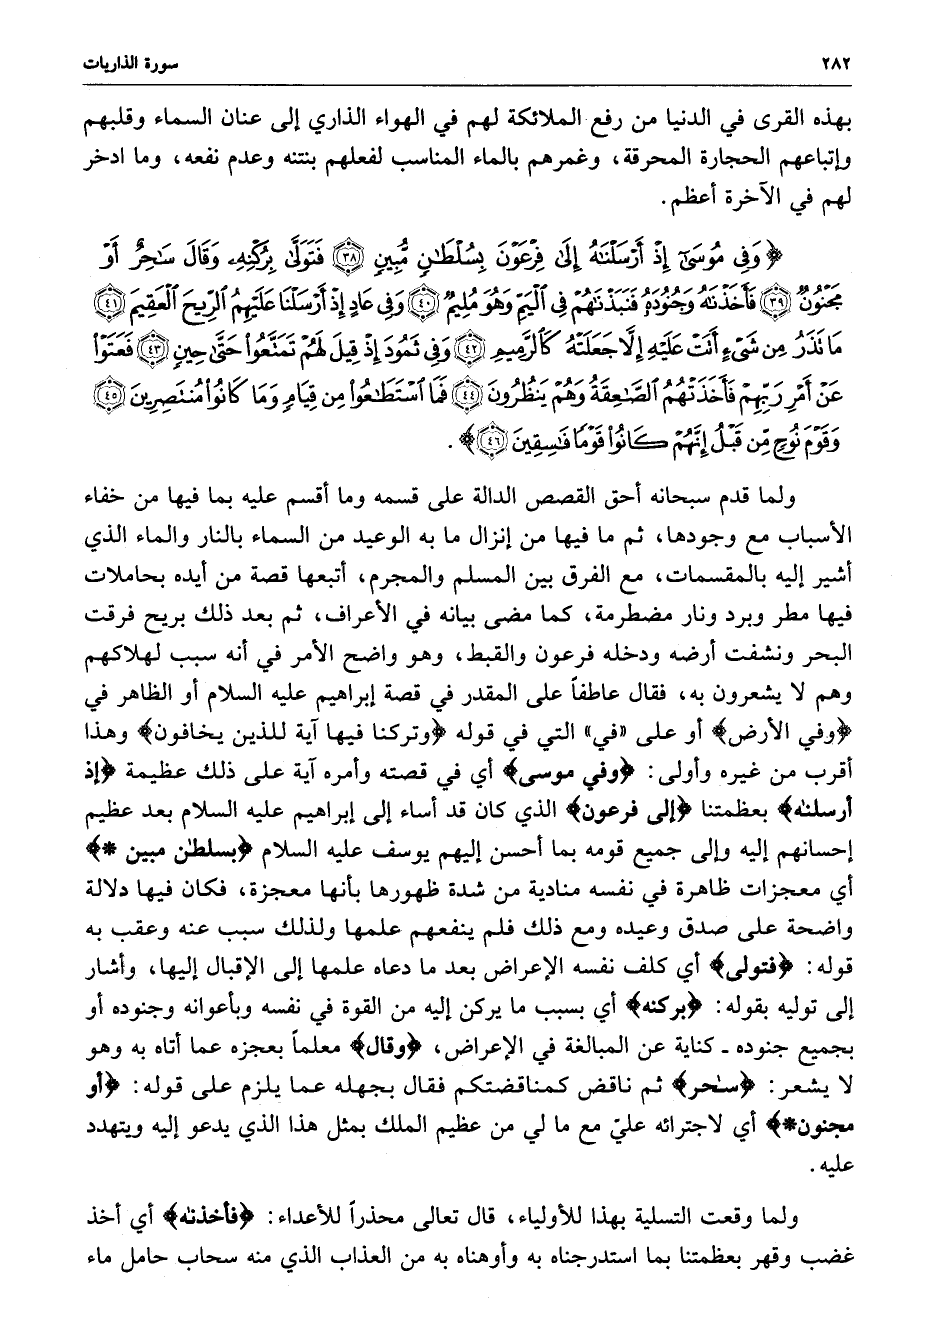 ٢٨٢ سورة الذاريات
بهذه القرى في الدنيا من رفع الملائكة لهم في الهواء الذاري إلى عنان السماء وقلبهم
وإتباعهم الحجارة المحرقة، وغمرهم بالماء المناسب لفعلهم بنتنه وعدم نفعه، وما ادخر
لهم في الآخرة أعظم.
﴿وَفِي مُوسَىٰٓ إِذۡ أَرۡسَلۡنَٰهُ إِلَىٰ فِرۡعَوۡنَ بِسُلۡطَٰنٖ مُّبِينٖ ٣٨ فَتَوَلَّىٰ بِرُكۡنِهِۦ وَقَالَ سَٰحِرٌ أَوۡ
مَجۡنُونٞ ٣٩ فَأَخَذۡنَٰهُ وَجُنُودَهُۥ فَنَبَذۡنَٰهُمۡ فِي ٱلۡيَمِّ وَهُوَ مُلِيمٞ ٤٠ وَفِي عَادٍ إِذۡ أَرۡسَلۡنَا عَلَيۡهِمُ ٱلرِّيحَ ٱلۡعَقِيمَ ٤١
مَا تَذَرُ مِن شَيۡءٍ أَتَتۡ عَلَيۡهِ إِلَّا جَعَلَتۡهُ كَٱلرَّمِيمِ ٤٢ وَفِي ثَمُودَ إِذۡ قِيلَ لَهُمۡ تَمَتَّعُواْ حَتَّىٰ حِينٖ ٤٣ فَعَتَوۡاْ
عَنۡ أَمۡرِ رَبِّهِمۡ فَأَخَذَتۡهُمُ ٱلصَّٰعِقَةُ وَهُمۡ يَنظُرُونَ ٤٤ فَمَا ٱسۡتَطَٰعُواْ مِن قِيَامٖ وَمَا كَانُواْ مُنتَصِرِينَ ٤٥
وَقَوۡمَ نُوحٖ مِّن قَبۡلُۖ إِنَّهُمۡ كَانُواْ قَوۡمٗا فَٰسِقِينَ ٤٦﴾.
ولما قدم سبحانه أحق القصص الدالة على قسمه وما أقسم عليه بما فيها من خفاء
الأسباب مع وجودها، ثم ما فيها من إنزال ما به الوعيد من السماء بالنار والماء الذي
أشير إليه بالمقسمات، مع الفرق بين المسلم والمجرم، أتبعها قصة من أيده بحاملات
فيها مطر وبرد ونار مضطرمة، كما مضى بيانه في الأعراف، ثم بعد ذلك بريح فرقت
البحر ونشفت أرضه ودخله فرعون والقبط، وهو واضح الأمر في أنه سبب لهلاكهم
وهم لا يشعرون به، فقال عاطفاً على المقدر في قصة إبراهيم عليه السلام أو الظاهر في
﴿وفي الأرض﴾ أو على «في» التي في قوله ﴿وتركنا فيها آية للذين يخافون﴾ وهذا
أقرب من غيره وأولى: ﴿وفي موسى﴾ أي في قصته وأمره آية على ذلك عظيمة ﴿إذ
أرسلنٰه﴾ بعظمتنا ﴿إلى فرعون﴾ الذي كان قد أساء إلى إبراهيم عليه السلام بعد عظيم
إحسانهم إليه وإلى جميع قومه بما أحسن إليهم يوسف عليه السلام ﴿بسلطٰن مبين *﴾
أي معجزات ظاهرة في نفسه منادية من شدة ظهورها بأنها معجزة، فكان فيها دلالة
واضحة على صدق وعيده ومع ذلك فلم ينفعهم علمها ولذلك سبب عنه وعقب به
قوله: ﴿فتولى﴾ أي كلف نفسه الإعراض بعد ما دعاه علمها إلى الإقبال إليها، وأشار
إلى توليه بقوله: ﴿بركنه﴾ أي بسبب ما يركن إليه من القوة في نفسه وبأعوانه وجنوده أو
بجميع جنوده ـ كناية عن المبالغة في الإعراض، ﴿وقال﴾ معلماً بعجزه عما أتاه به وهو
لا يشعر: ﴿سٰحر﴾ ثم ناقض كمناقضتكم فقال بجهله عما يلزم على قوله: ﴿أو
مجنون*﴾ أي لاجترائه عليّ مع ما لي من عظيم الملك بمثل هذا الذي يدعو إليه ويتهدد
عليه.
ولما وقعت التسلية بهذا للأولياء، قال تعالى محذراً للأعداء: ﴿فأخذنٰه﴾ أي أخذ
غضب وقهر بعظمتنا بما استدرجناه به وأوهناه به من العذاب الذي منه سحاب حامل ماء